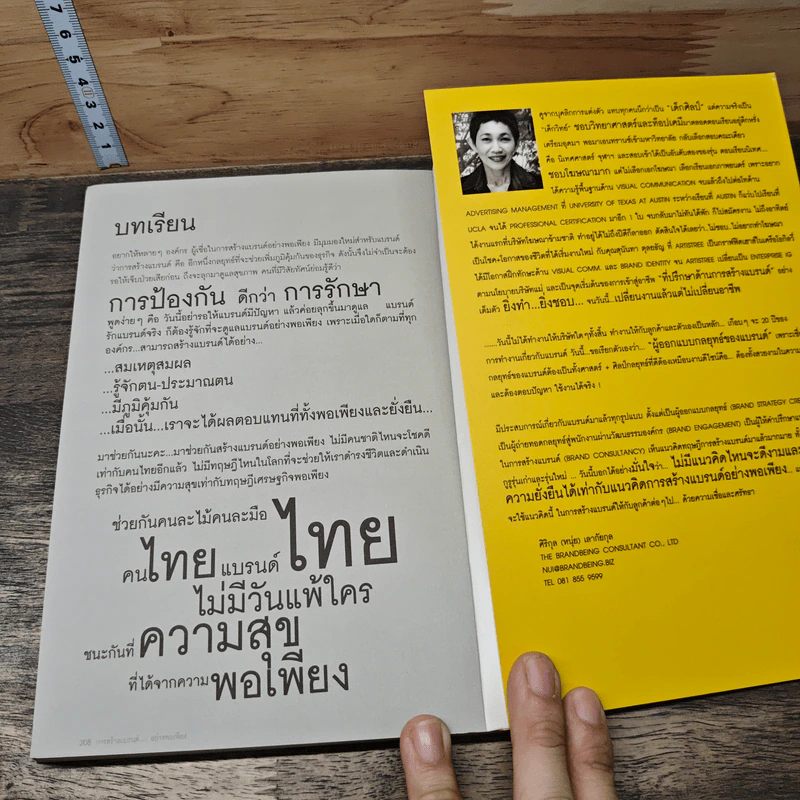 7 6 5 4 3 2 1
บทเรียน
อยากให้หลายๆ องค์กร ผู้เชื่อในการสร้างแบรนด์อย่างพอเพียง มีมุมมองใหม่สำหรับแบรนด์
ว่าการสร้างแบรนด์ คือ อีกหนึ่งกลยุทธ์ที่จะช่วยเพิ่มภูมิคุ้มกันของธุรกิจ ดังนั้นจึงไม่จำเป็นจะต้อง
รอให้เจ็บป่วยเสียก่อน ถึงจะลุกมาดูแลสุขภาพ คนที่มีวิสัยทัศน์ย่อมรู้ดีว่า
การป้องกัน ดีกว่า การรักษา
พูดง่ายๆ คือ วันนี้อย่ารอให้แบรนด์มีปัญหา แล้วค่อยลุกขึ้นมาดูแล แบรนด์
รักแบรนด์จริง ก็ต้องรู้จักที่จะดูแลแบรนด์อย่างพอเพียง เพราะเมื่อใดก็ตามที่ทุก
องค์กร...สามารถสร้างแบรนด์ได้อย่าง...
...สมเหตุสมผล
...รู้จักตน-ประมาณตน
...มีภูมิคุ้มกัน
...เมื่อนั้น...เราจะได้ผลตอบแทนที่ทั้งพอเพียงและยั่งยืน...
มาช่วยกันนะคะ...มาช่วยกันสร้างแบรนด์อย่างพอเพียง ไม่มีคนชาติไหนจะโชคดี
เท่ากับคนไทยอีกแล้ว ไม่มีทฤษฎีไหนในโลกที่จะช่วยให้เราดำรงชีวิตและดำเนิน
ธุรกิจได้อย่างมีความสุขเท่ากับทฤษฎีเศรษฐกิจพอเพียง
ช่วยกันคนละไม้คนละมือ
คนไทย แบรนด์ ไทย
ไม่มีวันแพ้ใคร
ชนะกันที่ ความสุข
ที่ได้จากความ พอเพียง
208 การสร้างแบรนด์... อย่างพอเพียง
ดูจากบุคลิกการแต่งตัว แทบทุกคนนึกว่าเป็น "เด็กศิลป์" แต่ความจริงเป็น
"เด็กวิทย์" ชอบวิทยาศาสตร์และท็อปเคมีมาตลอดตอนเรียนอยู่ตึกฝรั่ง
เตรียมอุดมฯ พอมาเอนทรานซ์เข้ามหาวิทยาลัย กลับเลือกสอบคณะเดียว
คือ นิเทศศาสตร์ จุฬาฯ และสอบเข้าได้เป็นอันดับสองของรุ่น ตอนเรียนนิเทศ...
ชอบโฆษณามาก แต่ไม่เลือกเอกโฆษณา เลือกเรียนเอกภาพยนตร์ เพราะอยาก
ได้ความรู้พื้นฐานด้าน VISUAL COMMUNICATION จบแล้วจึงไปต่อโทด้าน
ADVERTISING MANAGEMENT ที่ UNIVERSITY OF TEXAS AT AUSTIN ระหว่างเรียนที่ AUSTIN ก็แว่บไปเรียนที่
UCLA จนได้ PROFESSIONAL CERTIFICATION มาอีก 1 ใบ จบกลับมาไม่ทันได้พัก ก็ไปสมัครงาน ไม่ถึงอาทิตย์
ได้งานแรกที่บริษัทโฆษณาข้ามชาติ ทำอยู่ได้ไม่ถึงปีดีก็ลาออก ตัดสินใจได้เลยว่า..ไม่ชอบ..ไม่อยากทำโฆษณา
เป็นโชค+โอกาสของชีวิตที่ได้เริ่มงานใหม่ กับคุณสุนันทา ตุลยธัญ ที่ ARTISTREE เป็นกราฟฟิคเฮาส์ในเครือโอกิลวี่
ได้มีโอกาสฝึกทักษะด้าน VISUAL COMM. และ BRAND IDENTITY จน ARTISTREE เปลี่ยนเป็น ENTERPRISE IG
ตามนโยบายบริษัทแม่ และเป็นจุดเริ่มต้นของการเข้าสู่อาชีพ "ที่ปรึกษาด้านการสร้างแบรนด์" อย่าง
เต็มตัว ยิ่งทำ...ยิ่งชอบ... จนวันนี้...เปลี่ยนงานแล้วแต่ไม่เปลี่ยนอาชีพ
......วันนี้ไม่ได้ทำงานให้บริษัทใดๆทั้งสิ้น ทำงานให้กับลูกค้าและตัวเองเป็นหลัก... เกือบๆ จะ 20 ปีของ
การทำงานเกี่ยวกับแบรนด์ วันนี้...ขอเรียกตัวเองว่า... "ผู้ออกแบบกลยุทธ์ของแบรนด์"
กลยุทธ์ของแบรนด์ต้องเป็นทั้งศาสตร์ + ศิลป์กลยุทธ์ที่ดีต้องเหมือนงานดีไซน์คือ... ต้องทั้งสวยงาม
และต้องตอบปัญหา ใช้งานได้จริง !
มีประสบการณ์เกี่ยวกับแบรนด์มาแล้วทุกรูปแบบ ตั้งแต่เป็นผู้ออกแบบกลยุทธ์ (BRAND STRATEGY
เป็นผู้ถ่ายทอดกลยุทธ์สู่พนักงานผ่านวัฒนธรรมองค์กร (BRAND ENGAGEMENT) เป็นผู้ให้คำปรึกษา
ในการสร้างแบรนด์ (BRAND CONSULTANCY) เห็นแนวคิดทฤษฎีการสร้างแบรนด์มาแล้วมากมาย
กูรูรุ่นเก่าและรุ่นใหม่ ... วันนี้บอกได้อย่างมั่นใจว่า... ไม่มีแนวคิดไหนจะดีงามและ
ความยั่งยืนได้เท่ากับแนวคิดการสร้างแบรนด์อย่างพอเพียง...
จะใช้แนวคิดนี้ ในการสร้างแบรนด์ให้กับลูกค้าต่อๆไป... ด้วยความเชื่อและศรัทธา
ศิริกุล (หนุ่ย) เลากัยกุล
THE BRANDBEING CONSULTANT CO., LTD
NUI@BRANDBEING.BIZ
TEL 081 855 9599